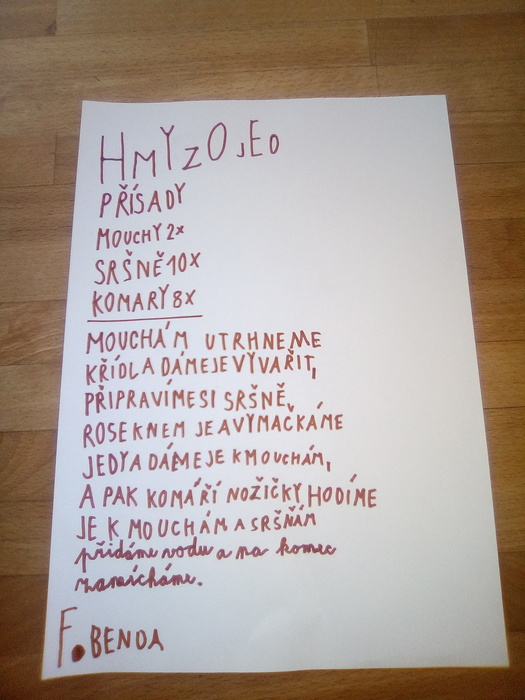 HMYZOJED
PŘÍSADY
MOUCHY 2x
SRŠNĚ 10x
KOMARY 8x
MOUCHÁM UTRHNEME
KŘÍDLA DÁMEJE VYVAŘIT,
PŘIPRAVÍMESI SRŠNĚ,
ROSEKNEM JE A VYMAČKÁME
JEDY A DÁMEJE K MOUCHÁM,
A PAK KOMÁŘÍ NOŽIČKY HODÍME
JE K MOUCHÁM A SRŠŇÁM
přidáme vodu a na konec
zamícháme.
F. BENDA